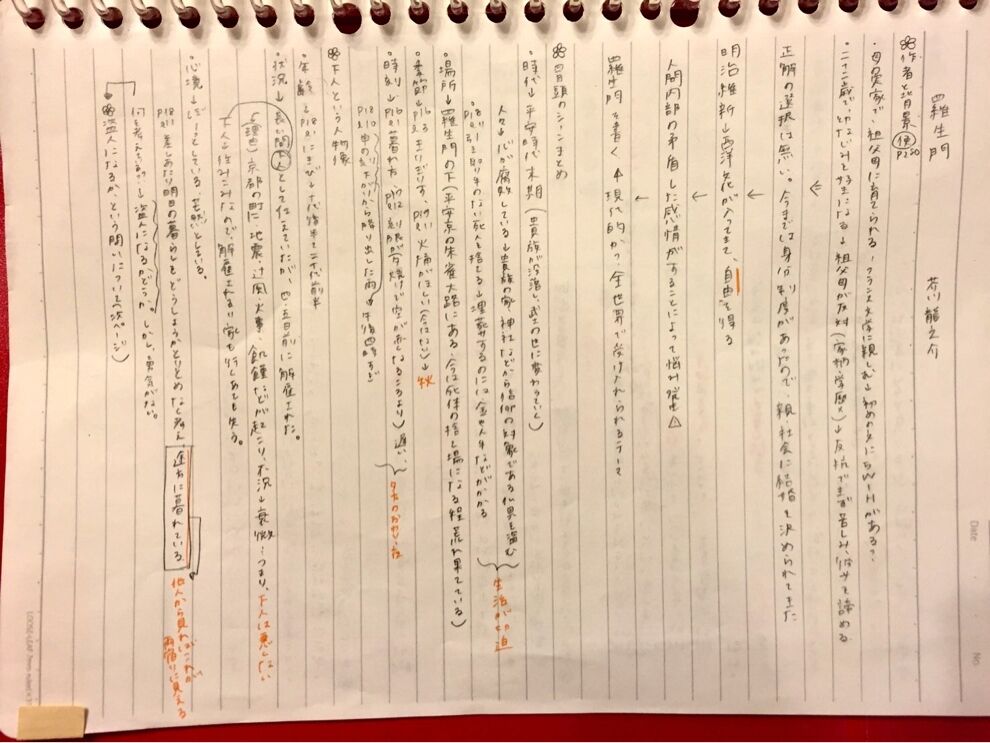 羅生門　芥川龍之介
作者と背景 便 P220
・母の実家で、祖父母に育てられる・フランス文学に親しむ→初めの文に5W1Hがある?
・二十二歳で、幼なじみを好きになる→祖父母が反対(家柄・学歴×)→反抗できず苦しみ、彼女を諦める
正解の選択は無い。今までは身分制度があったので、親・社会に結婚を決められてきた
↓
明治維新→西洋文化が入ってきて、自由を得る
↓
人間内部の矛盾した感情がすることによって悩み発生△
↓
羅生門を書く 現代的かつ、全世界で受け入れられるテーマ
冒頭のシーンまとめ
・時代→平安時代末期(貴族が没落し、武士の世に変わっていく)
人々→心が腐敗している→貴族の家、神社などから信仰の対象である仏具を盗む
P18 引き取り手のない死人を捨てる→埋葬するのには金や人手などがかかる
生活が切迫
・場所→羅生門の下(平安京の朱雀大路にある、今は死体の捨て場になる程荒れ果てている)
・季節→P16 きりぎりす、P19 火桶がほしい(今はない)→秋
・時刻→P16 暮れ方 夕焼けで空が赤くなるころより)遅い
P18 申の刻下がりから降り出した雨 午後四時すぎ
夕方のかなり後
下人という人物像
・年齢→P18 にきび→十代後半〜二十代前半
・状況→長い間下人として仕えていたが、四、五日前に解雇された。
(理由)京都の町に地震、辻風、火事、飢饉などが起こり、不況→衰微・つまり、下人は悪くない
下人→住みこみなので、解雇されると家も行くあても失う。
・心境→ぼーっとしている、茫然としている。
P18 差しあたり明日の暮らしをどうしようかとりとめなく考え 途方に暮れている
他人から見ればこれが雨宿りに見える
何考えてるの?→盗人になるかどうか。しかし、勇気がない。
盗人になるか、という問いについて(次ページ)
Date
No.
LOOSE-LEAF